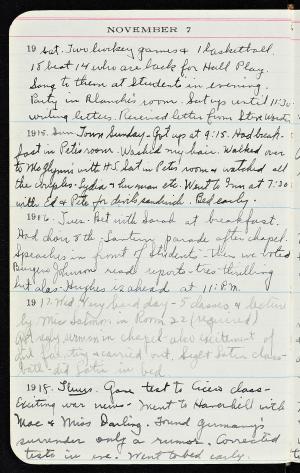 NOVEMBER 7
19 Sat. Two hockey games & 1 basketball.
18 beat 14 who are back for Hall Play.
Song to them at Students in evening.
Party in Blanche's room. Set up until 11:30
writing letters. Received letter from
1915. Sun Town Sunday - Got up at 9:15. Had break-
fast in Pete's room. Washed my hair. Walked over
to McGlynns with H.S. Sat in Pete's room & watched all
the couples - Lydia & her man etc. Went to Inn at 7:30
with Ed & Pete for devil sandwich. Bed early.
1916. Tues. Bet with Sarah at breakfast.
Had choir 8th - Suffrage parade after chapel.
Speeches in front of Students - then we voted
Burges Johnson read reports - tres thrilling
but alas Hughes is ahead at 11:P.M.
1917. Wed Very hard day - 5 classes & lecture
by Miss Salmon in Room 22 (required)
sermon in chapel also excitement of
& carried out. Slept Latin class -
Well - did Latin in bed.
1918. Thurs. Gave test to Cicero class -
Exciting war news - Went to Haverhill with
Mac & Miss Darling. Found Germany's
surrender only a rumor. Corrected
tests in eve. Went to bed early.